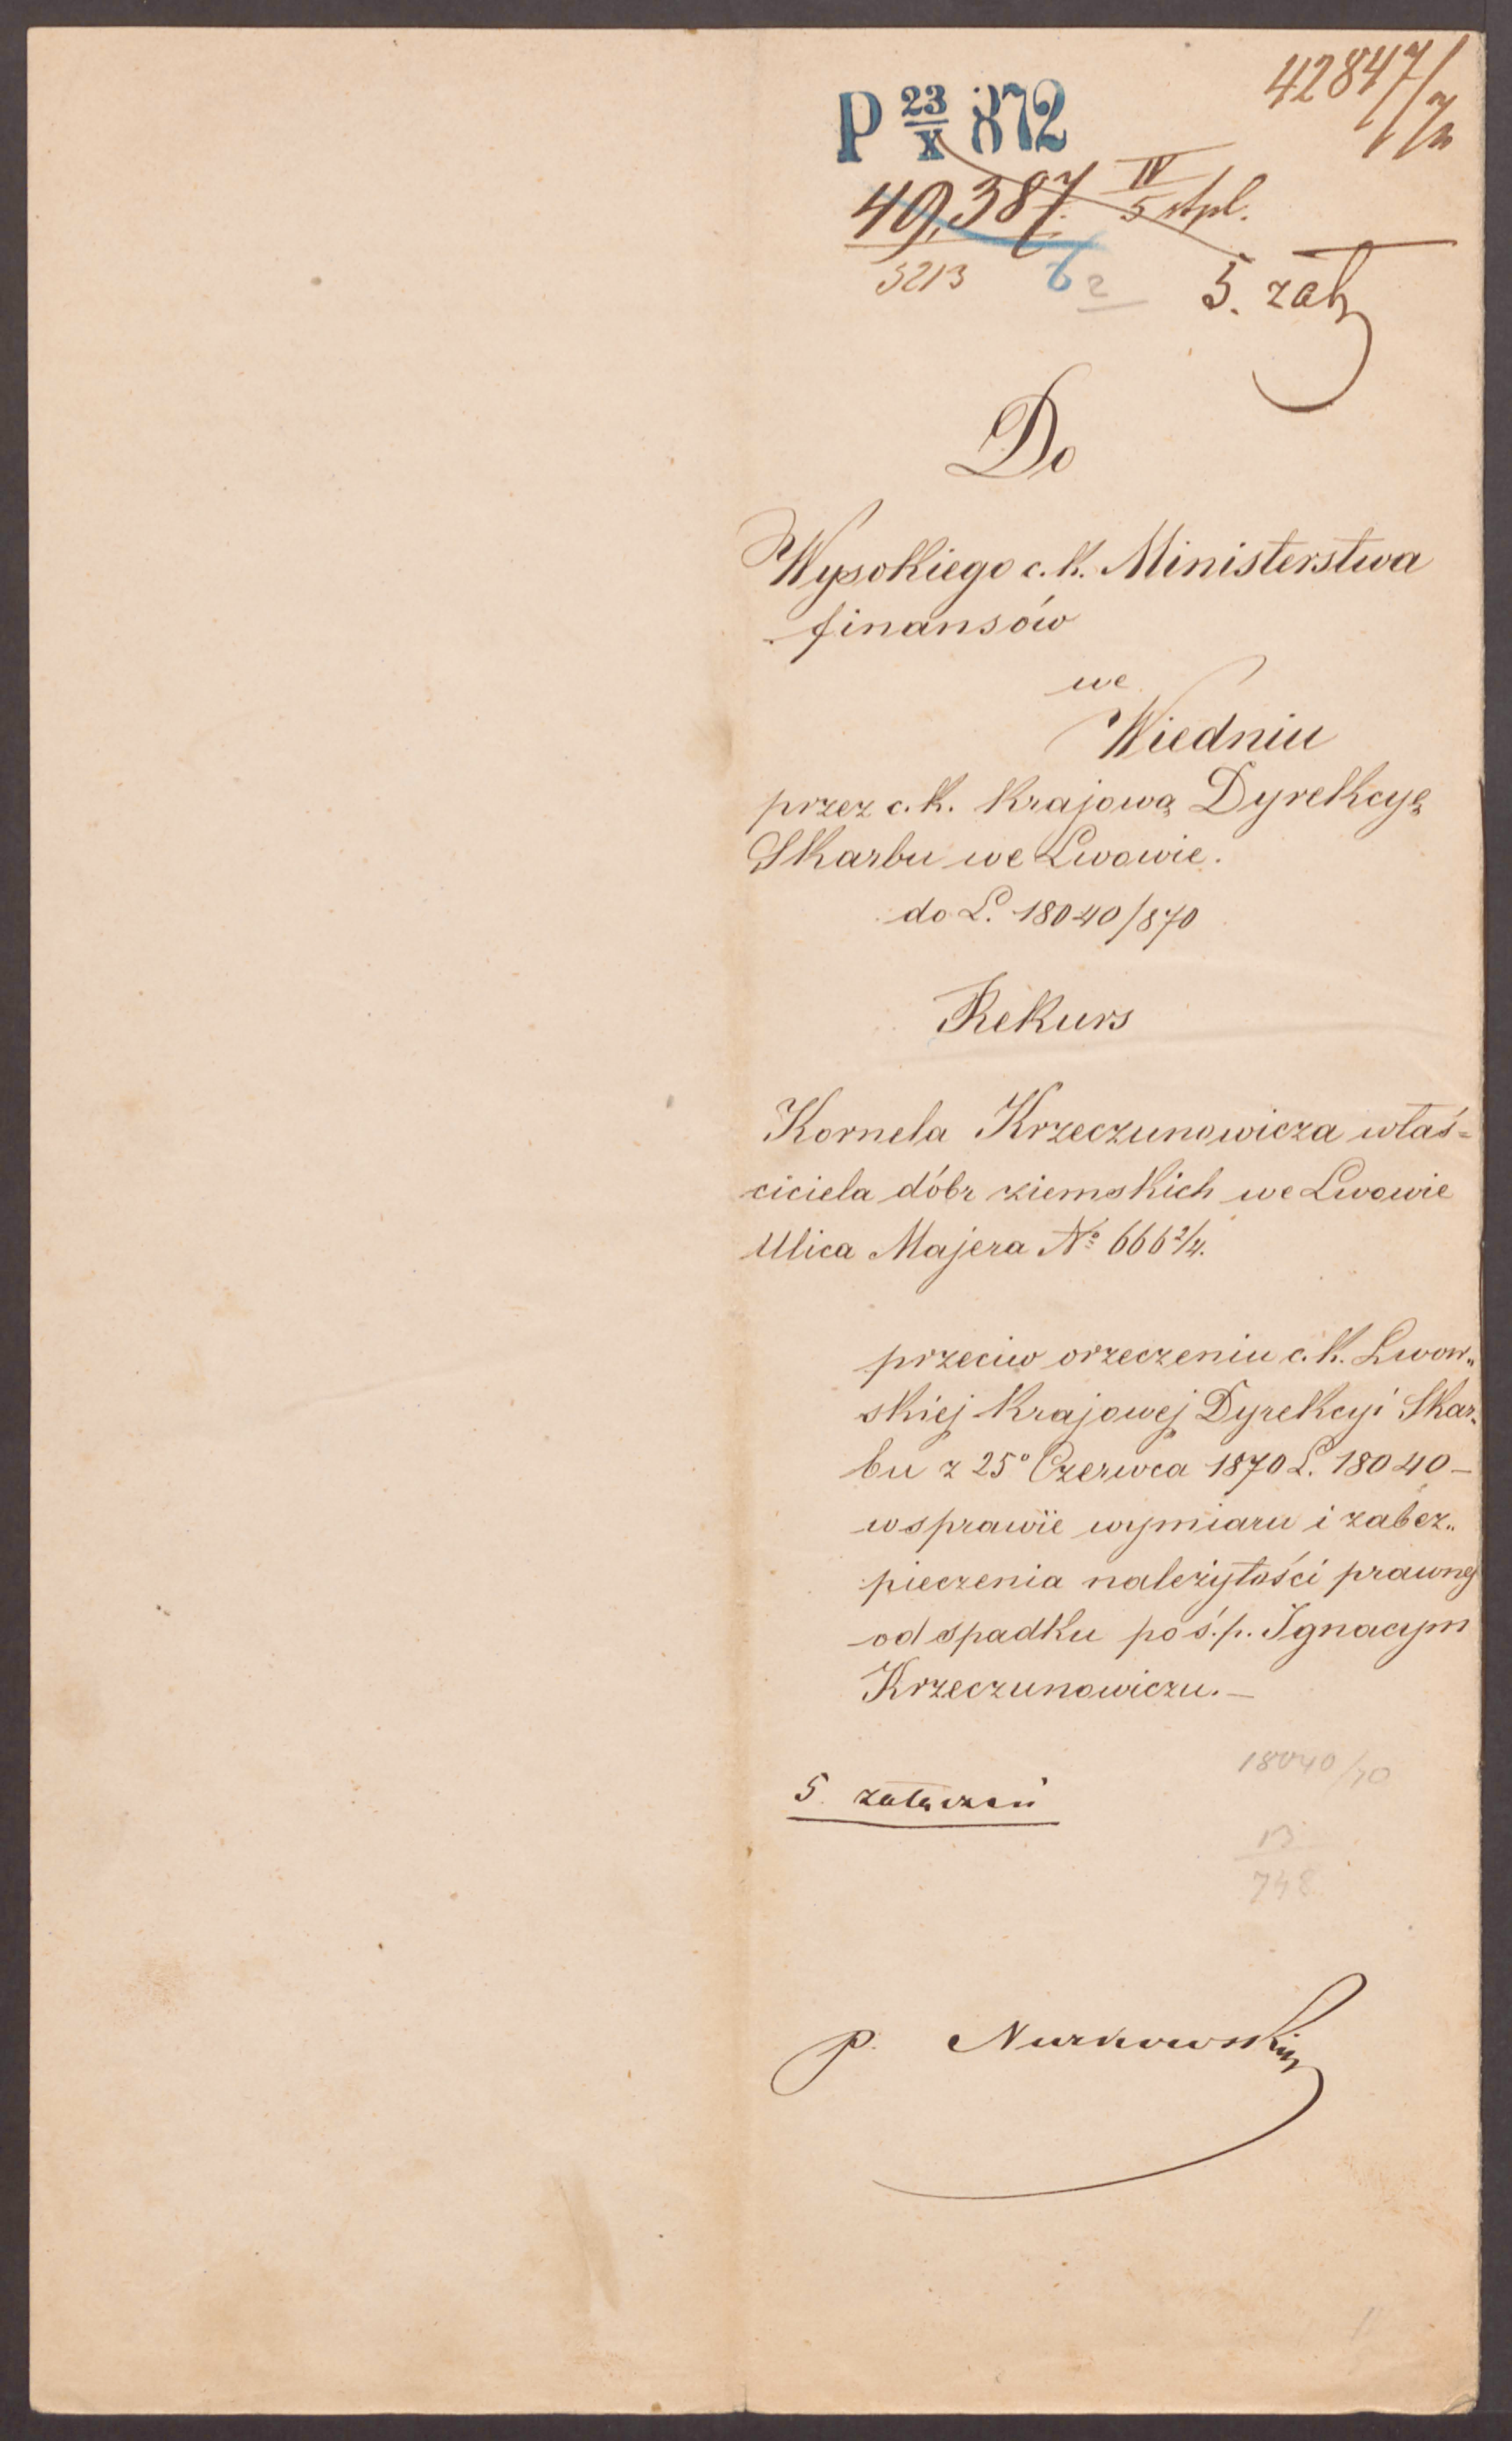 42847/72
P 23/X 872
49,387 IV/5 stpl.
5213
5. zał
Do
Wysokiego c. k. Ministerstwa
finansów
we
Wiedniu
przez c. k. Krajową Dyrekcyę
Skarbu we Lwowie.
do L. 18040/870
Rekurs
Kornela Krzeczunowicza właś=
ciciela dóbr ziemskich we Lwowie
Ulica Majera No 666 2/4.
przeciw orzeczeniu c. k. Lwow„
skiej Krajowej Dyrekcyi Skar„
bu z 25o Czerwca 1870 L. 18040 —
w sprawie wymiaru i zabez„
pieczenia należytości prawnej
od spadku po ś. p. Ignacym
Krzeczunowiczu. —
18040/70
5 załączeń
13/748
p. Nurkowski